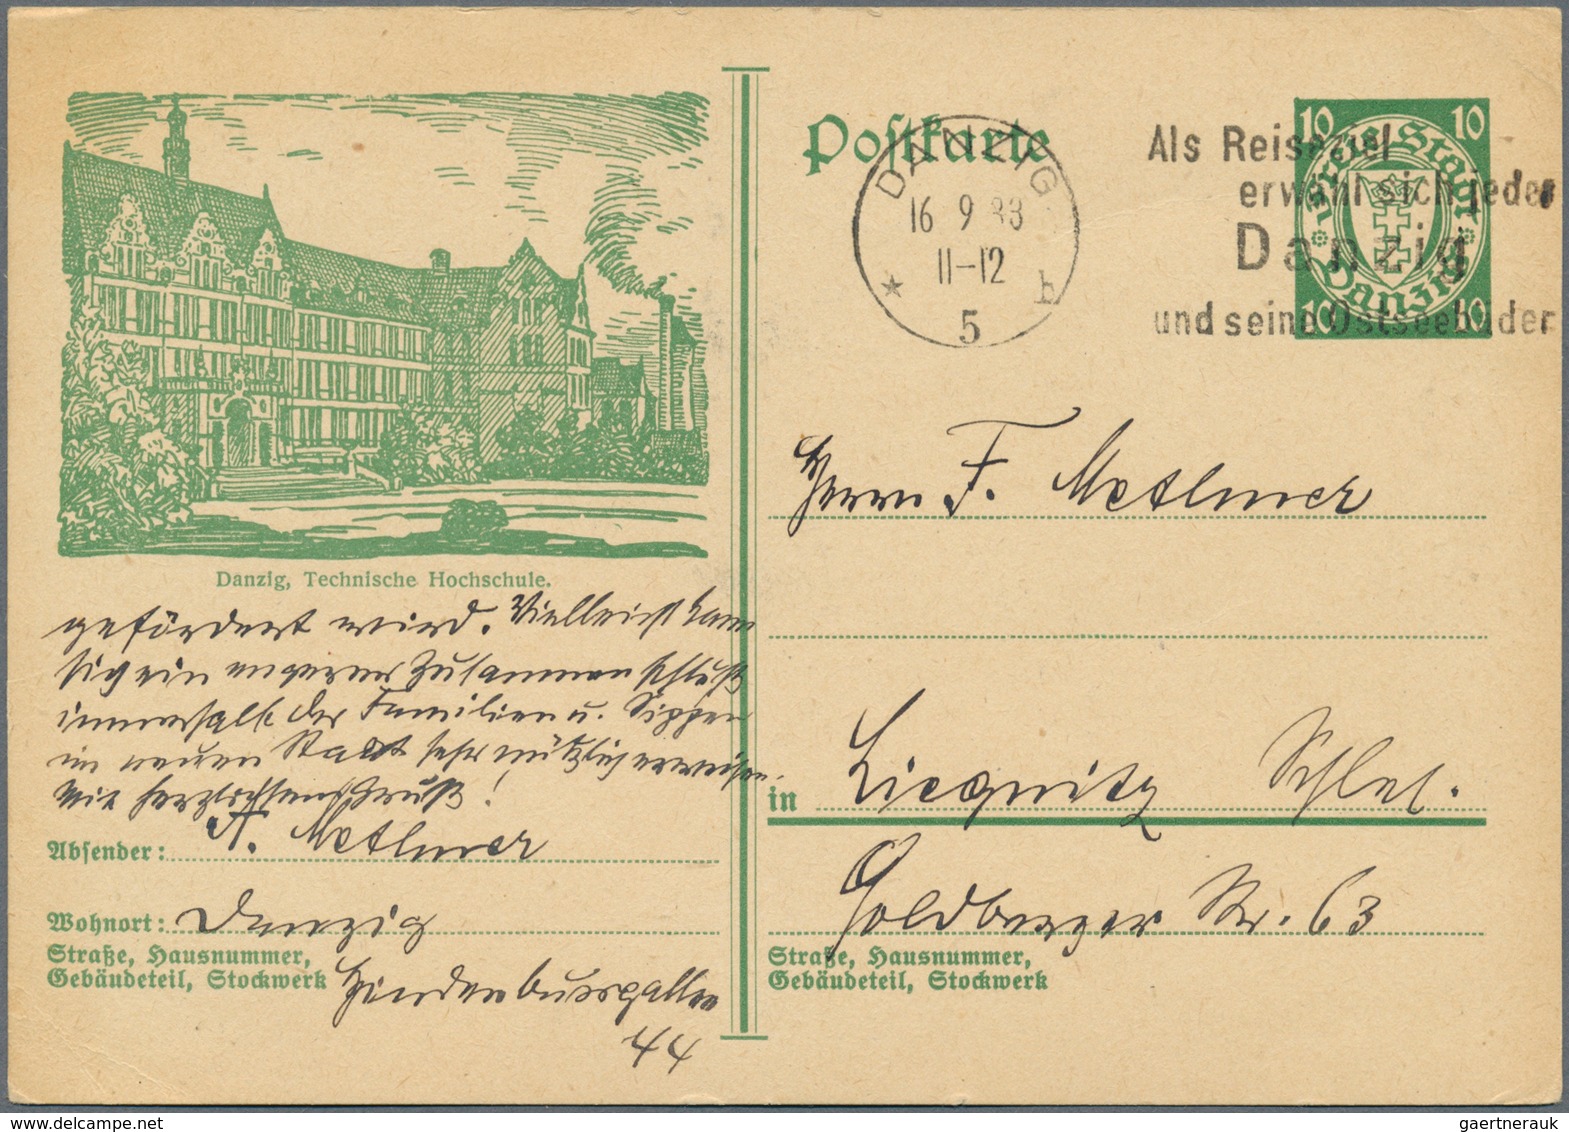 Postkarte
DANZIG
16 9 33
11-12
* 5 b
Als Reiseziel
erwähl sich jeder
Danzig
und seine Ostseebäder
10 10
Freie Stadt
Danzig
10 10
Danzig, Technische Hochschule.
gefördert wird. Vielleicht kann
sich ein engerer Zusammenschluß
innerhalb der Familien u. Sippen
im neuen Staat sehr nützlich erweisen.
Mit herzlichstem Gruß!
Absender: A. Methner
Wohnort: Danzig
Straße, Hausnummer,
Gebäudeteil, Stockwerk Hindenburgallee
44
Herrn F. Methner
in Liegnitz Schles.
Goldberger Str. 63
Straße, Hausnummer,
Gebäudeteil, Stockwerk
gaertnerauk @ delcampe.net